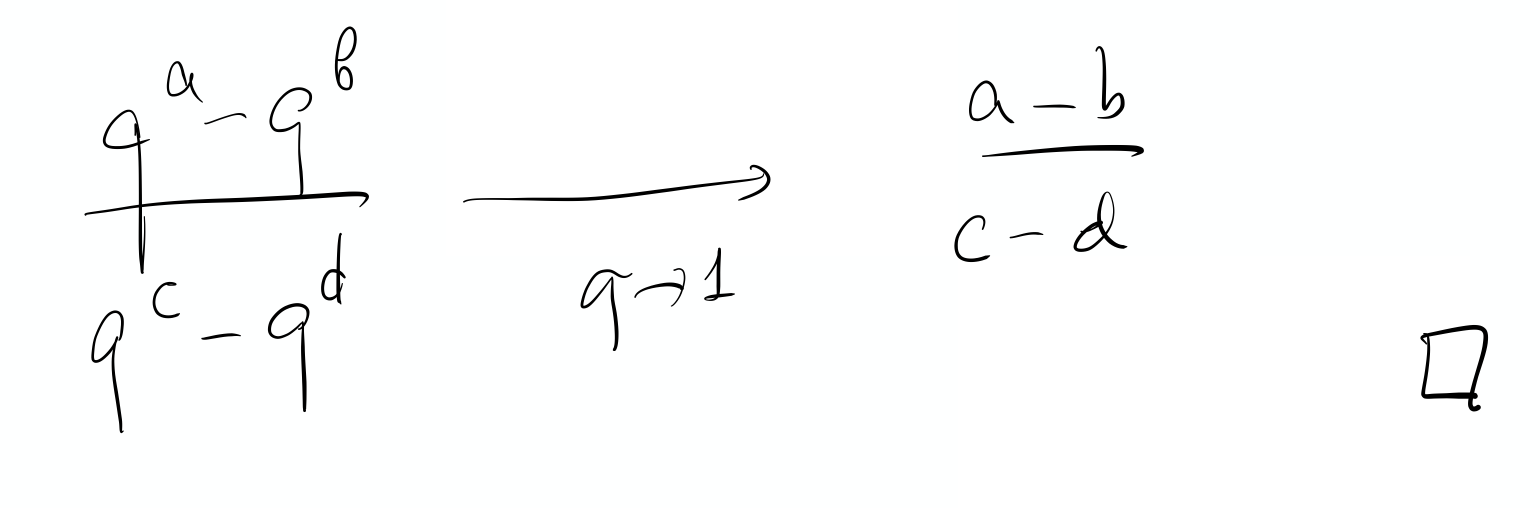 \frac{q^a - q^b}{q^c - q^d} \xrightarrow[q \to 1]{} \frac{a - b}{c - d}
□